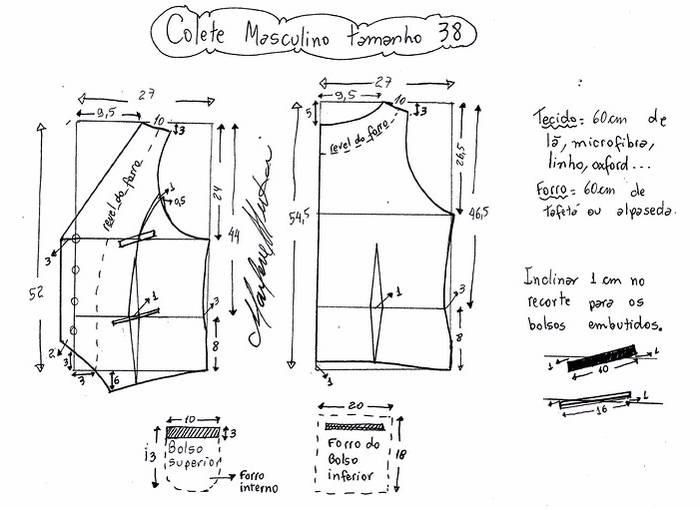 Colete Masculino tamanho 38
27
9,5
10
3
revel do forro
1
0,5
24
44
52
3
3
2
3
3
6
1
8
27
9,5
10
3
5
revel do forro
26,5
46,5
54,5
1
3
8
1
Tecido = 60cm de
lã, microfibra,
linho, oxford...
Forro = 60cm de
tafetá ou alpaseda.
Inclinar 1 cm no
recorte para os
bolsos embutidos.
1
1
10
1
1
16
10
3
13
Bolso
superior
Forro
interno
20
18
Forro do
Bolso
inferior